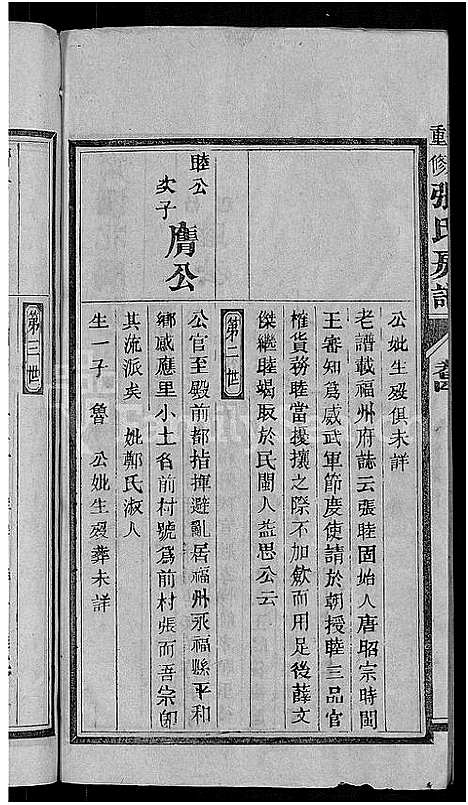 重修張氏房譜
公妣生歿俱未詳
老譜載福州府誌云張睦固始人唐昭宗時閩
王審知為威武軍節度使請於朝授睦三品官
榷貨務睦當擾攘之際不加歛而用足後薛文
傑繼睦竭取於民閩人益思公云
第二世
睦公
次子
膺公
公官至殿前都指揮避亂居福州永福縣平和
鄉感應里小土名前村號為前村張而吾宗師
其流派矣 妣鄭氏淑人
生一子 魯 公妣生歿葬未詳
第三世